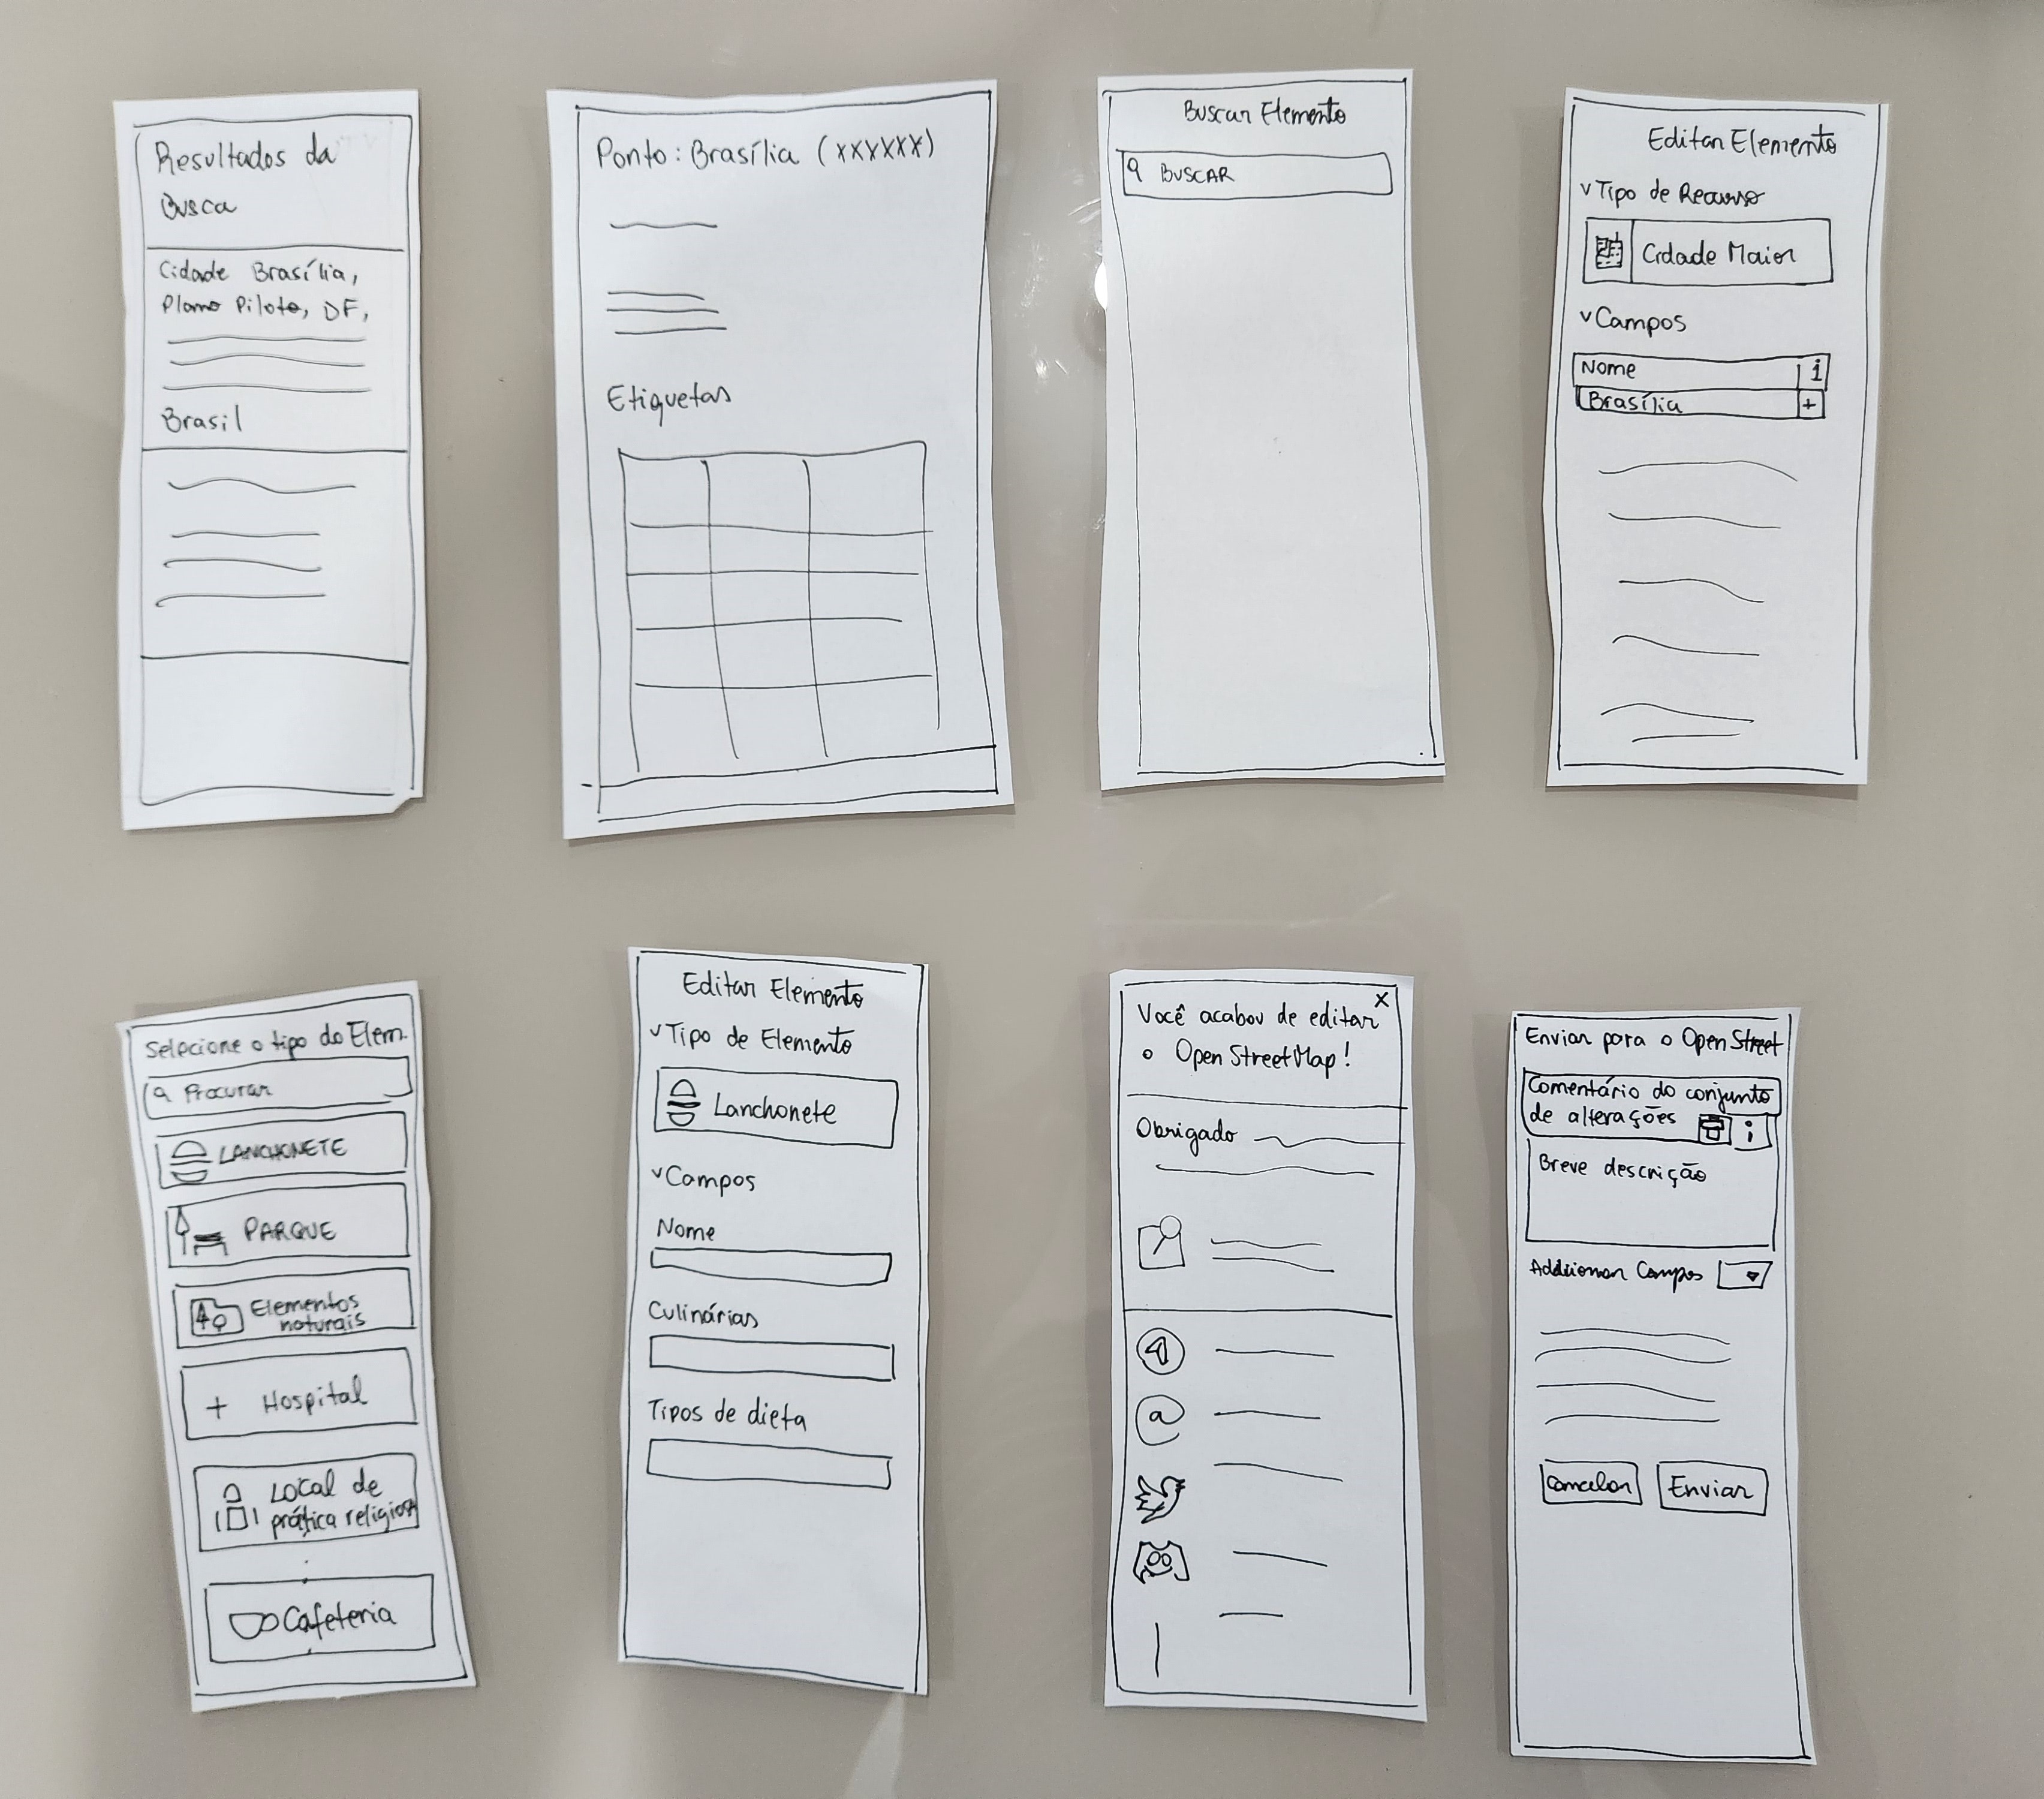 Resultados da
Busca
Cidade Brasília,
Plano Piloto, DF,
Brasil
Ponto: Brasília (xxxxxx)
Etiquetas
Buscar Elemento
BUSCAR
Editar Elemento
Tipo de Recurso
Cidade Maior
Campos
Nome i
Brasília +
Selecione o tipo do Elem.
Procurar
LANCHONETE
PARQUE
Elementos
naturais
+ Hospital
Local de
prática religiosa
Cafeteria
Editar Elemento
Tipo de Elemento
Lanchonete
Campos
Nome
Culinárias
Tipos de dieta
X
Você acabou de editar
o OpenStreetMap!
Obrigado
@
Enviar para o OpenStreet
Comentário do conjunto
de alterações i
Breve descrição
Addicionar Campos
Cancelar Enviar